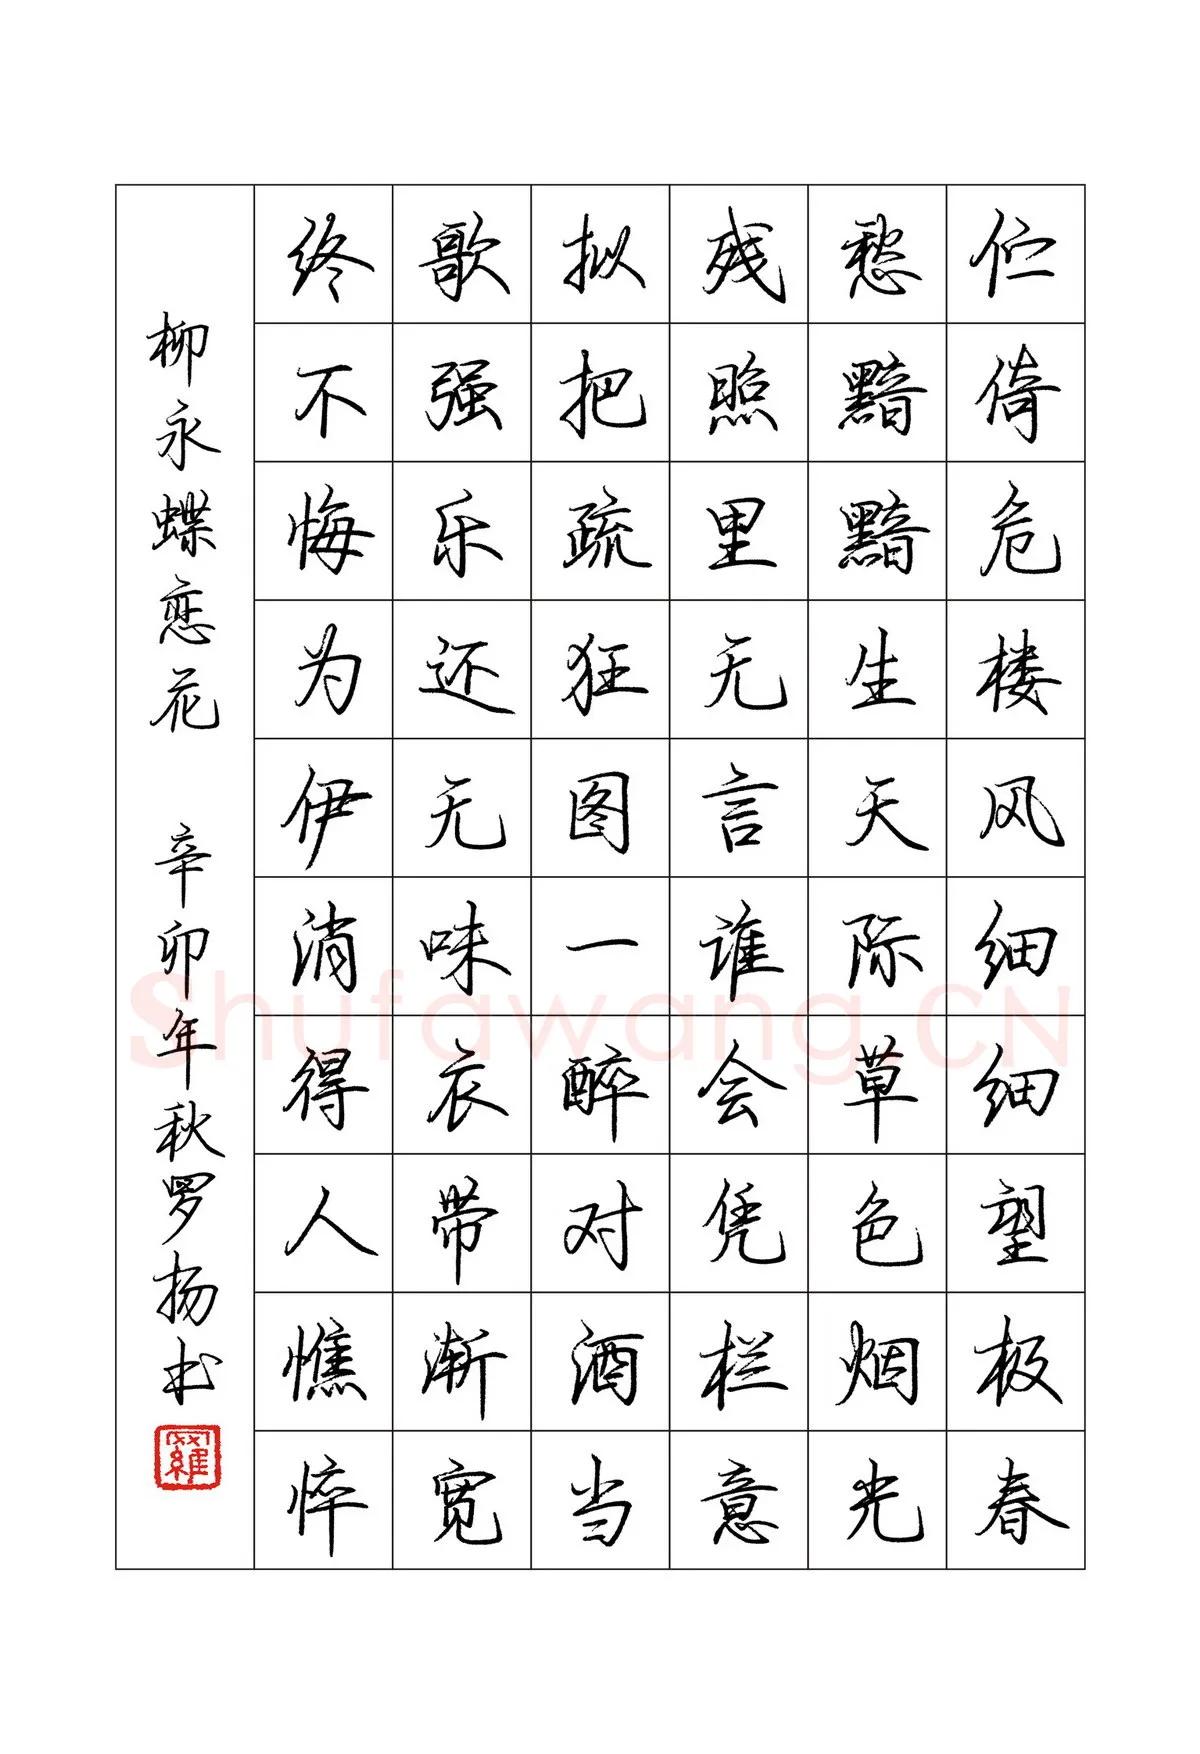 伫倚危楼风细细望极春
愁黯黯生天际草色烟光
残照里无言谁会凭栏意
拟把疏狂图一醉对酒当
歌强乐还无味衣带渐宽
终不悔为伊消得人憔悴
柳永蝶恋花 辛卯年秋罗扬书
羅
Shufawang.CN